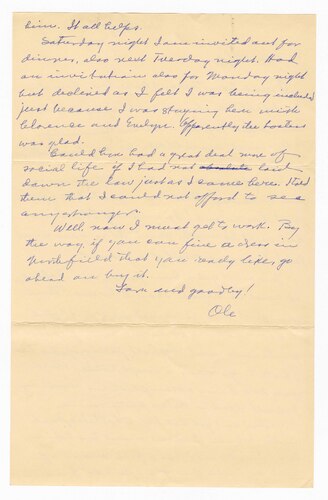 him. It all helps.
Saturday night I am invited out for
dinner, also next Tuesday night. Had
an invitation also for Monday night
but declined as I felt I was being included
just because I was staying here with
Clarence and Evelyn. Apparently the hostess
was glad.
Could have had a great deal more of
social life if I had not laid
down the law just as I came here. I told
them that I could not afford to see
any
Well, now I must get to work. By
the way if you can find a dress in
Northfield that you really like, go
ahead an buy it.
Love and goodby!
Ole